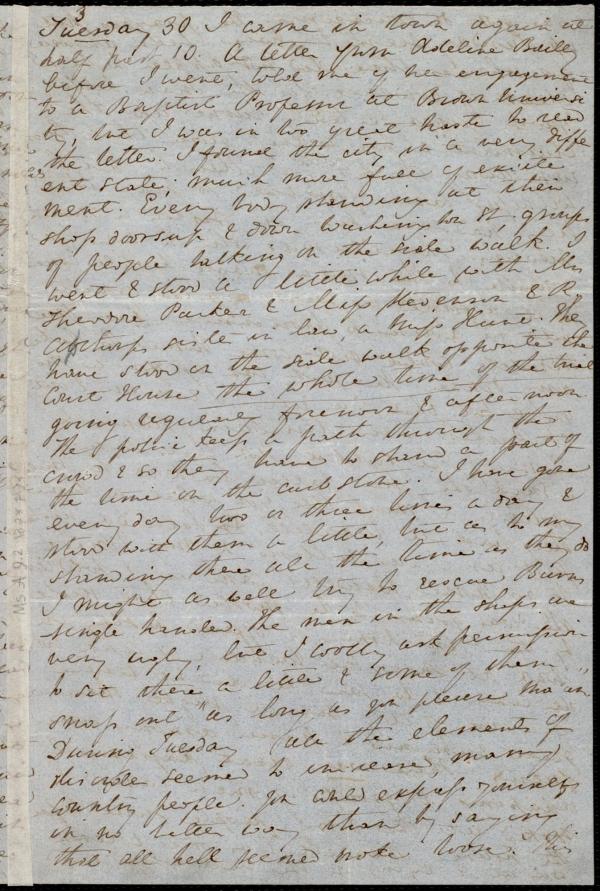 3
Tuesday 30 I came in town again at
half past 10. A letter from Adeline Bailey
before I went, told me of her engagement
to a Baptist Professor at Brown Universi
ty, but I was in too great haste to read
the letter. I found the city in a very diffe
ent state; much more full of excite
ment. Every body standing at their
shop doors up & down Washington St, groups
of people talking on the side walk. I
went & stood a little while with Mrs
Theodore Parker & Miss Stevenson & R
Apthorps sister in law, a Miss Hunt. The
have stood on the side walk opposite the
Court House the whole time of the trial
going regularly forenoon & afternoon
The police keep a path through the
crowd & so they have to stand a part of
the time on the curb stone. I have gone
every day two or three times a day &
stood with them a little, but as to my
standing there all the time as they do
I might as well try to rescue Burns
single handed. The men in the shops are
very ugly, but I coolly ask permission
to sit there a little & some of them
snap out "as long as you please ma'am"
During Tuesday all the elements of
discord seemed to increase, many
country people. You could express yourself
in no better way than by saying
that all hell seemed note loose. This
Ms. A.9.2